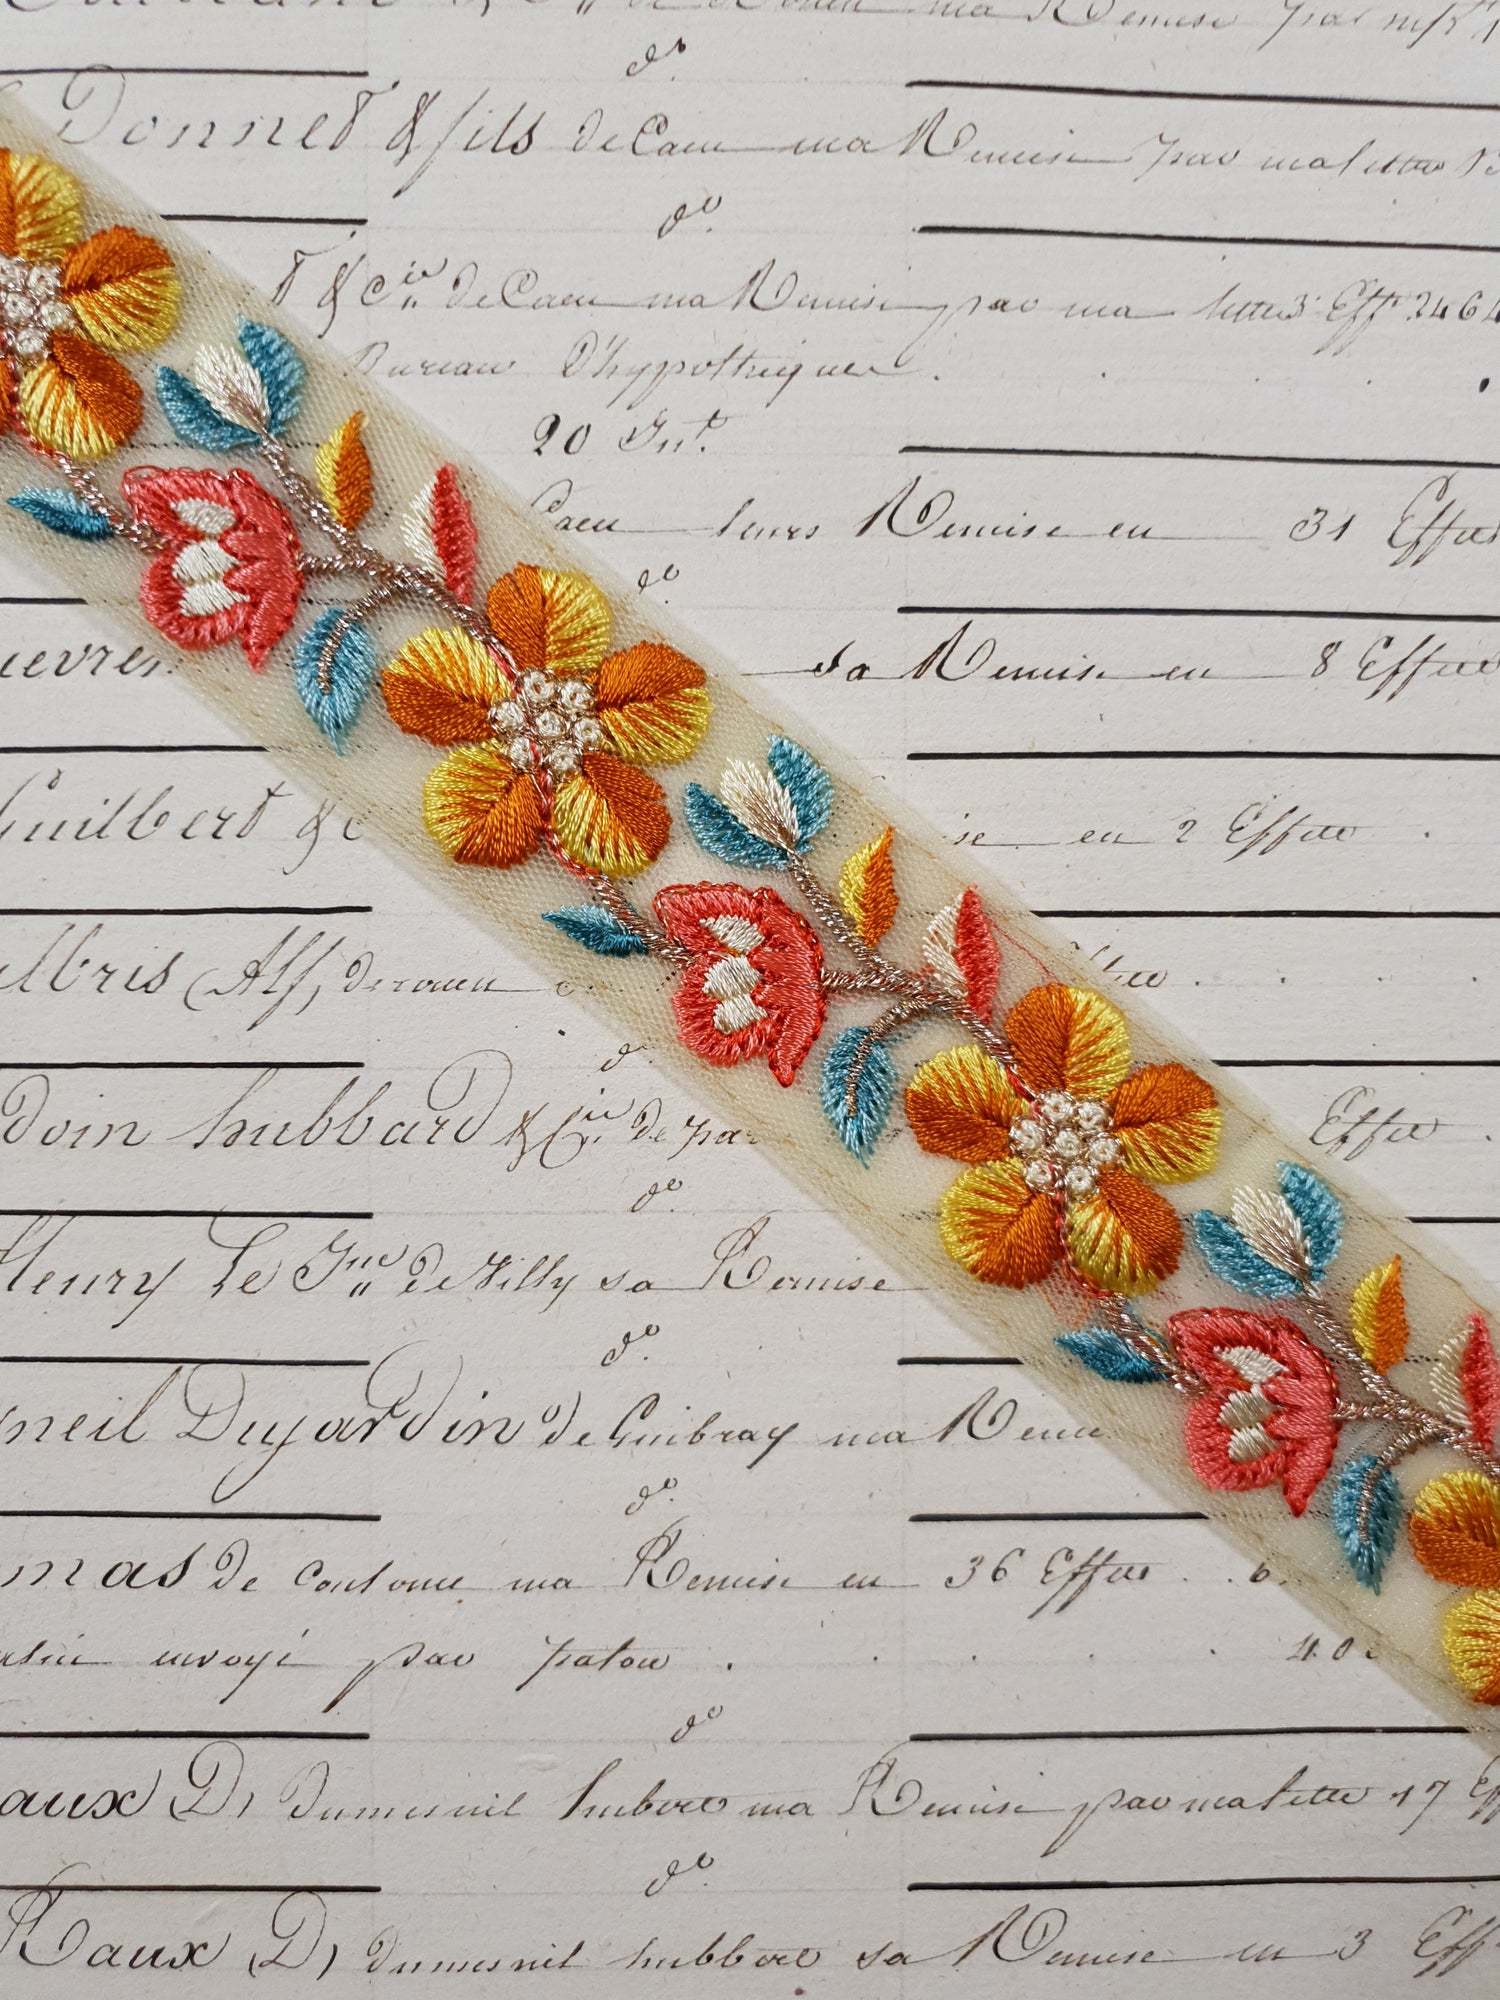 ma Remise par
do.
Donnet & fils de Caen ma Remise par ma lettre 13
do.
T & Cie de Caen ma Remise par ma lettre 3 Effts 2464
Bureau D'hypothèques
20 Int.
Caen leurs Remise en 31 Effets
do.
uevres sa Remise en 8 Effets
Guilbert & C se en 2 Effets
lbris (Alf) de rouen
do.
doin hubbard & Cie de par Effets
do.
henry Le Jne de Villy sa Remise
do.
neil Dujardin de Guibray ma Remi
do.
mas de ma Remise en 36 Effets 6
envoyé par patou 40
do.
aux D, dumesnil hubert ma Remise par ma lettre 17 Eff
do.
Raux D, dumesnil hubbert sa Remise en 3 Eff